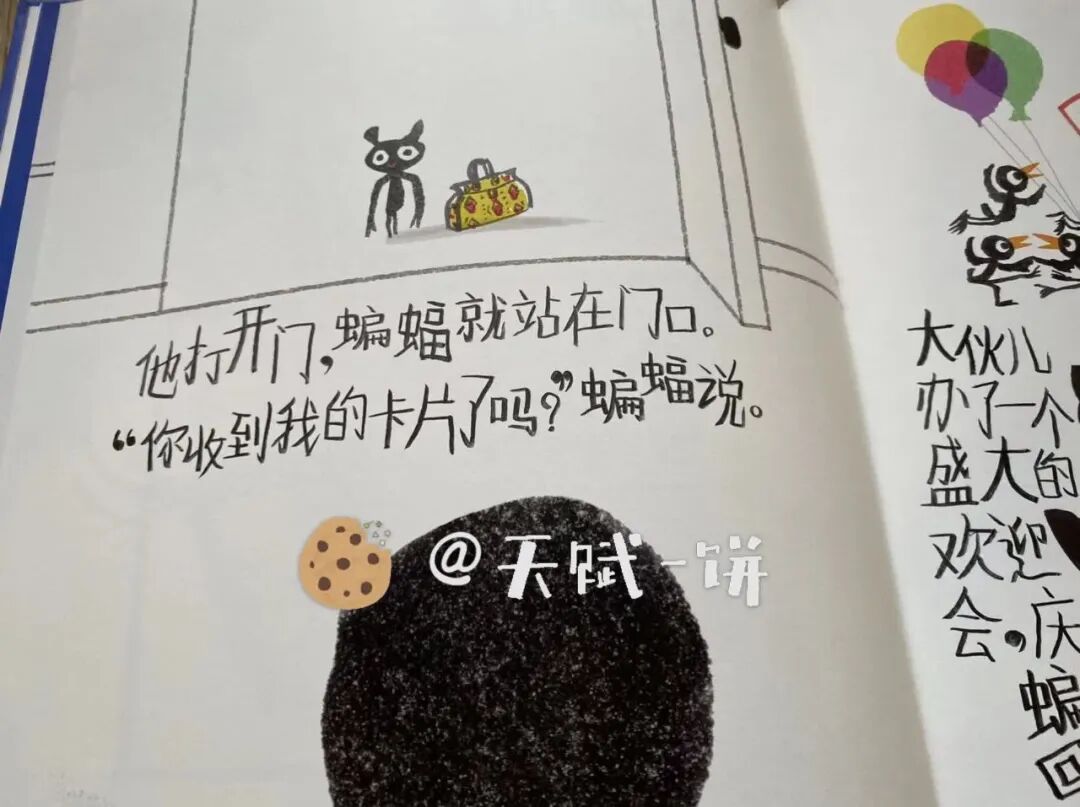 他打开门，蝙蝠就站在门口。
“你收到我的卡片了吗？”蝙蝠说。
@天赋一饼
大伙儿
办了一个
盛大的
欢迎
会，庆
蝙
回